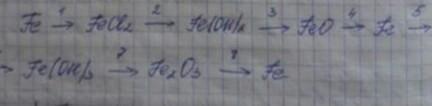 Fe 1→ FeCl2 2→ Fe(OH)2 3→ FeO 4→ Fe 5→
→ Fe(OH)3 7→ Fe2O3 8→ Fe